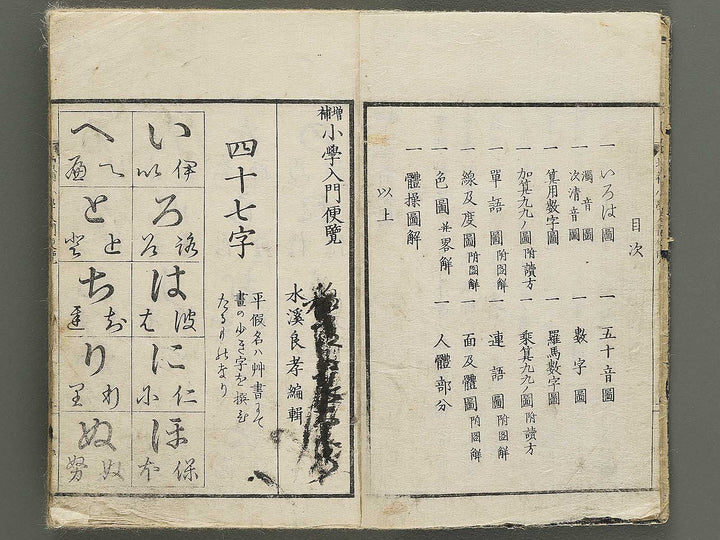 目次
一 いろは圖
一 五十音圖
一 濁音圖
次清音圖
一 數字圖
一 算用數字圖
一 羅馬數字圖
一 加算九九ノ圖 附讀方
一 乘算九九ノ圖 附讀方
一 單語圖 附圖解
一 連語圖 附圖解
一 線及度圖 附圖解
一 面及體圖 附圖解
一 色圖 並畧解
一 人體部分
一 體操圖解
以上
增補 小學入門便覽
水溪良孝編輯
四十七字
平假名ハ艸書にて
畫の少き字を撰び
たるものなり
い 伊 以
ろ 路 呂
は 波
に 仁
ほ 保
へ
と
ち
り 里
ぬ 努